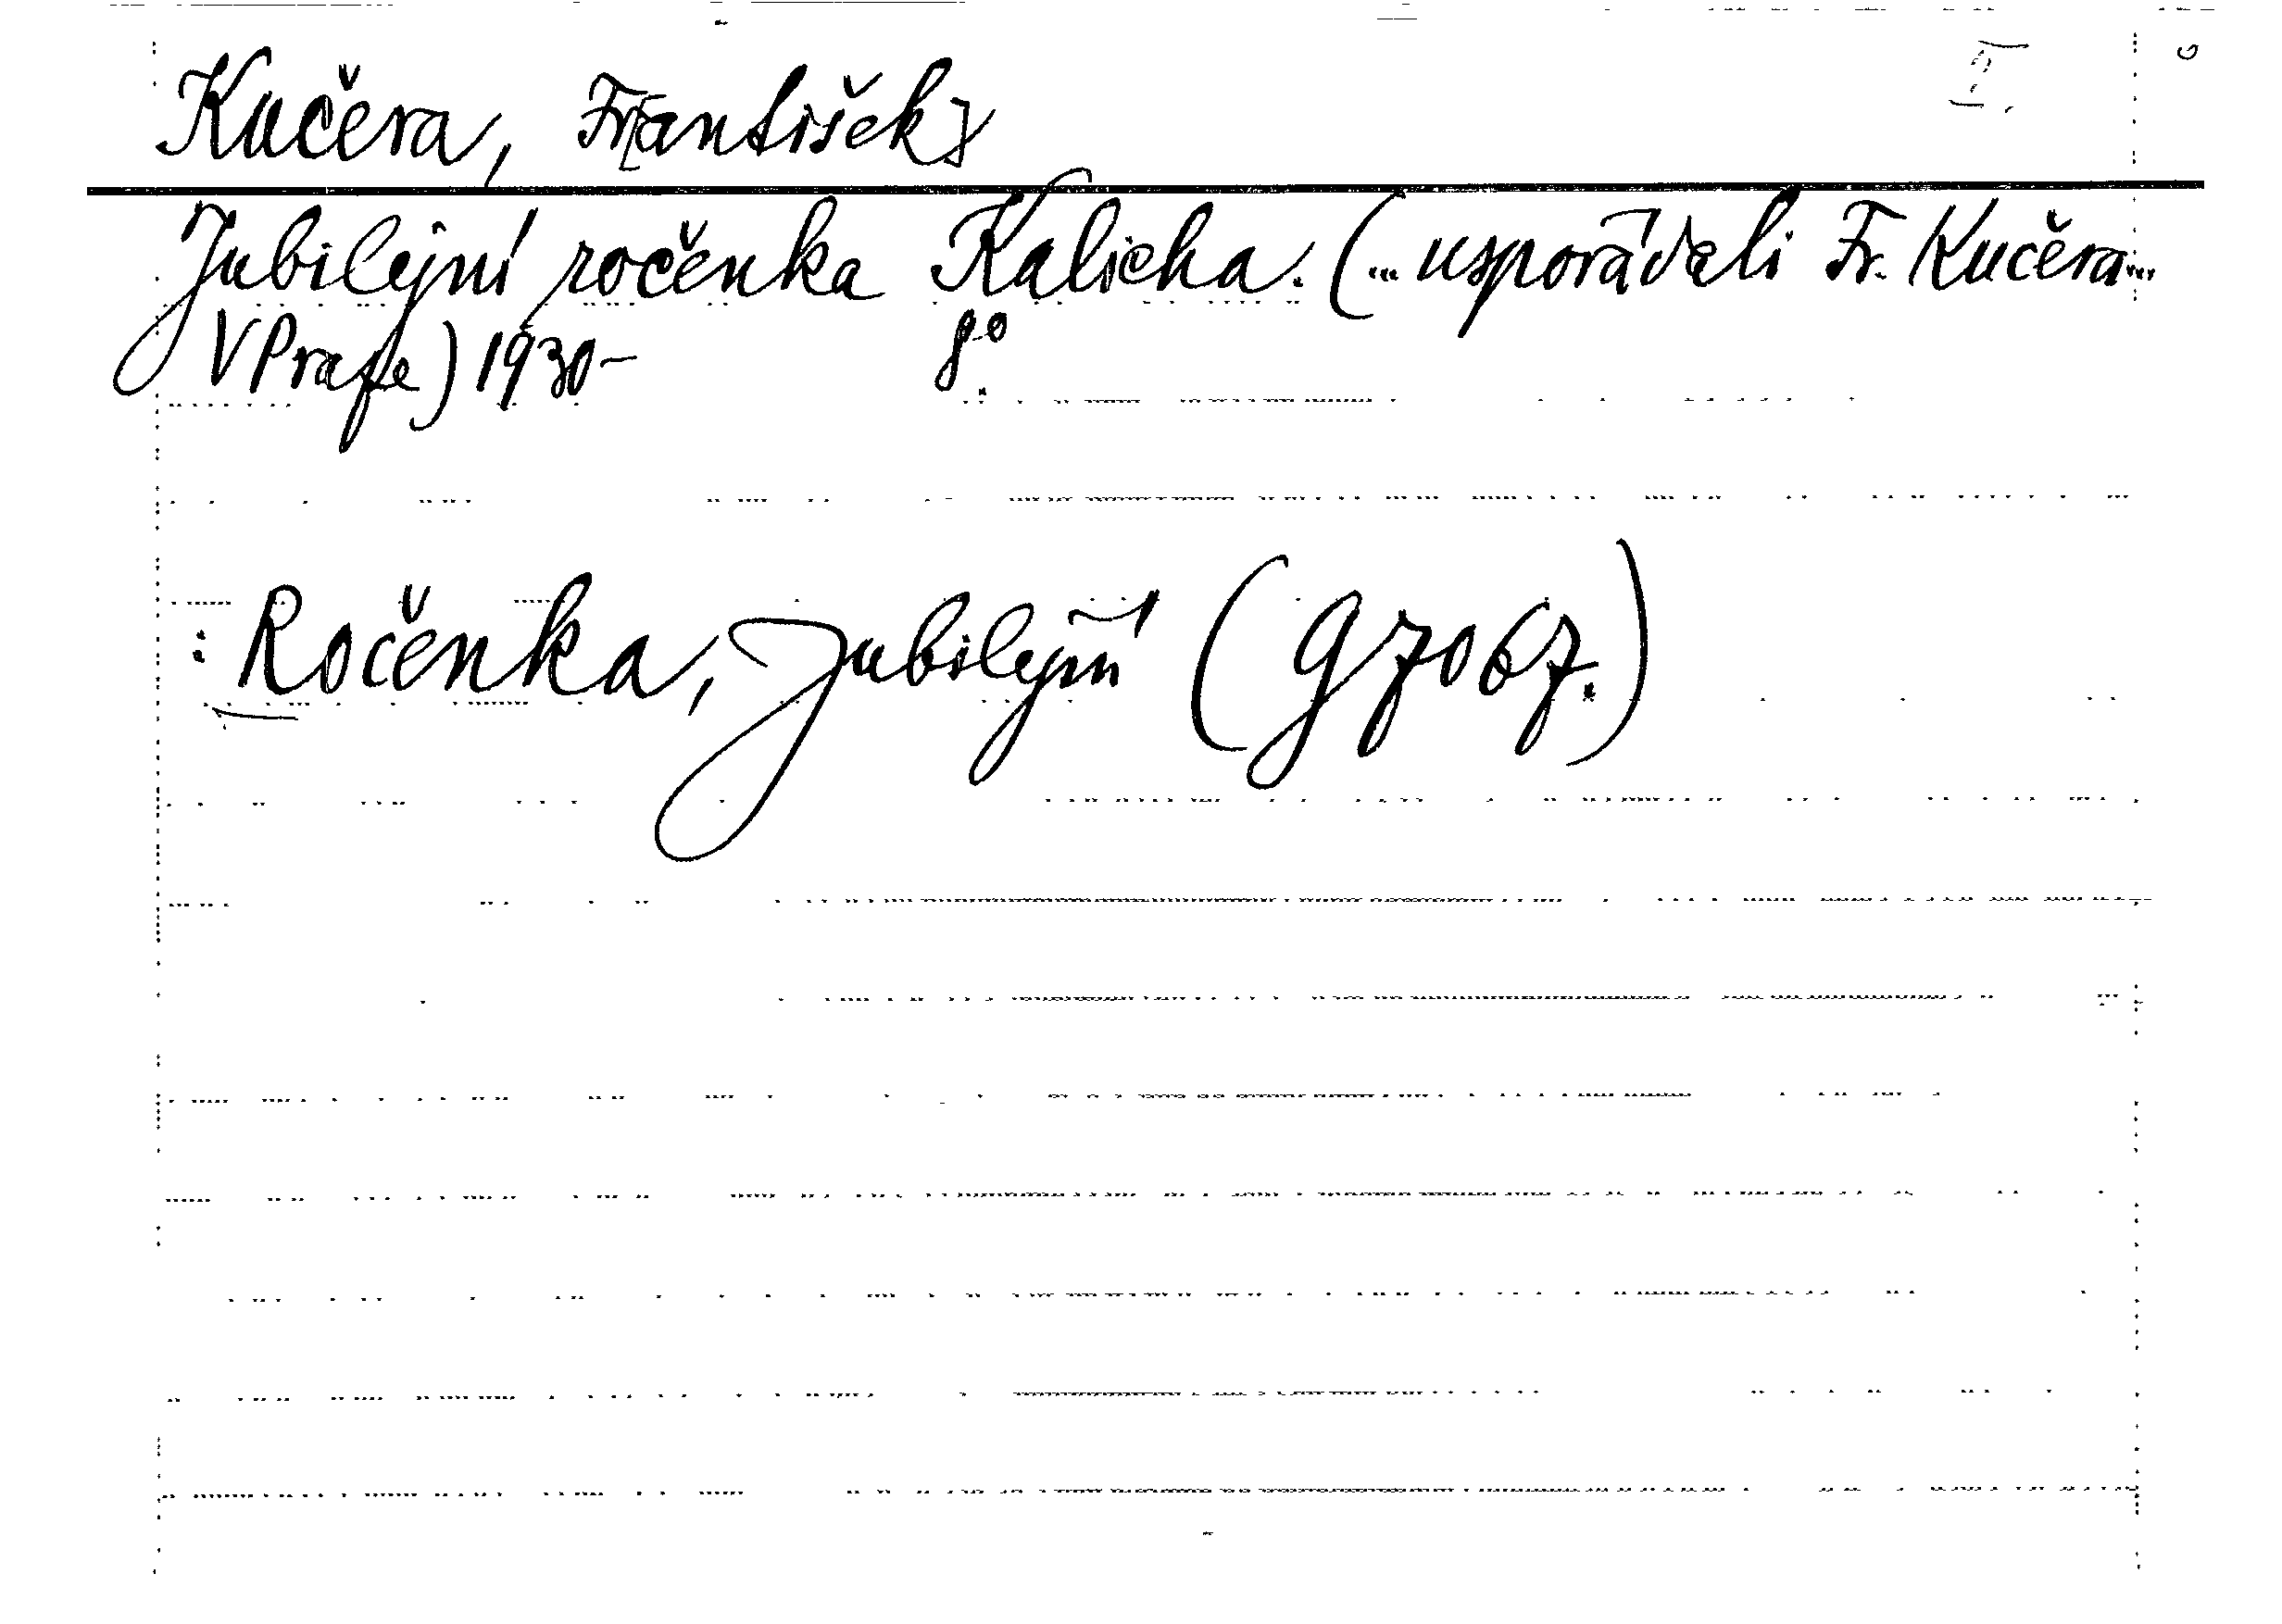 Kučera, Fr[antišek]
I.
Jubilejní ročenka Kalicha. (... uspořádali Fr. Kučera...
V Praze) 1930- 8°.
: Ročenka, Jubilejní (g 7067.)